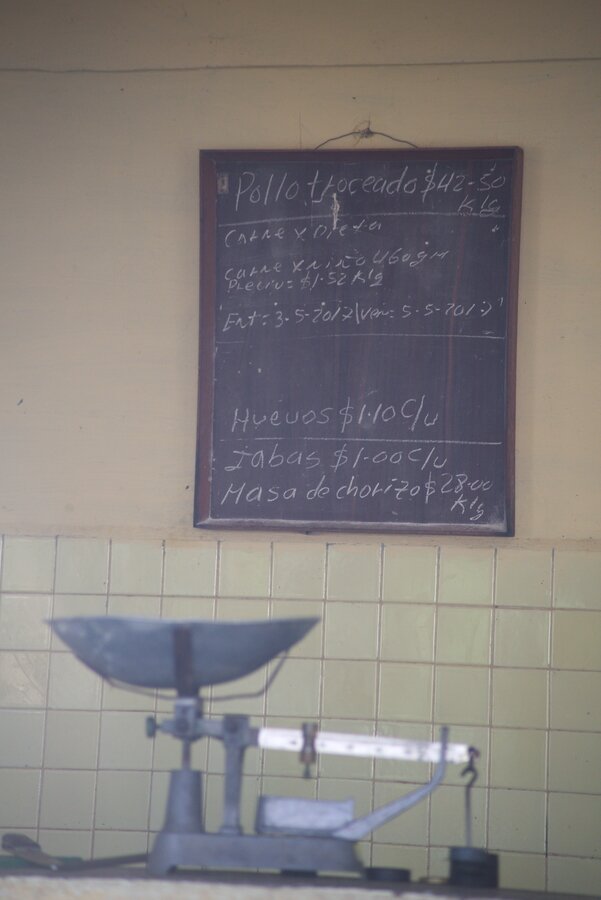 Pollo troceado $42-50
Klg
Carne x Dieta
Carne x niño 460gm
Precio= $1.52 Klg
Ent: 3-5-2017 Ven: 5-5-2017
Huevos $1.10 C/u
Jabas $1.00 C/u
Masa de chorizo $28.00
Klg